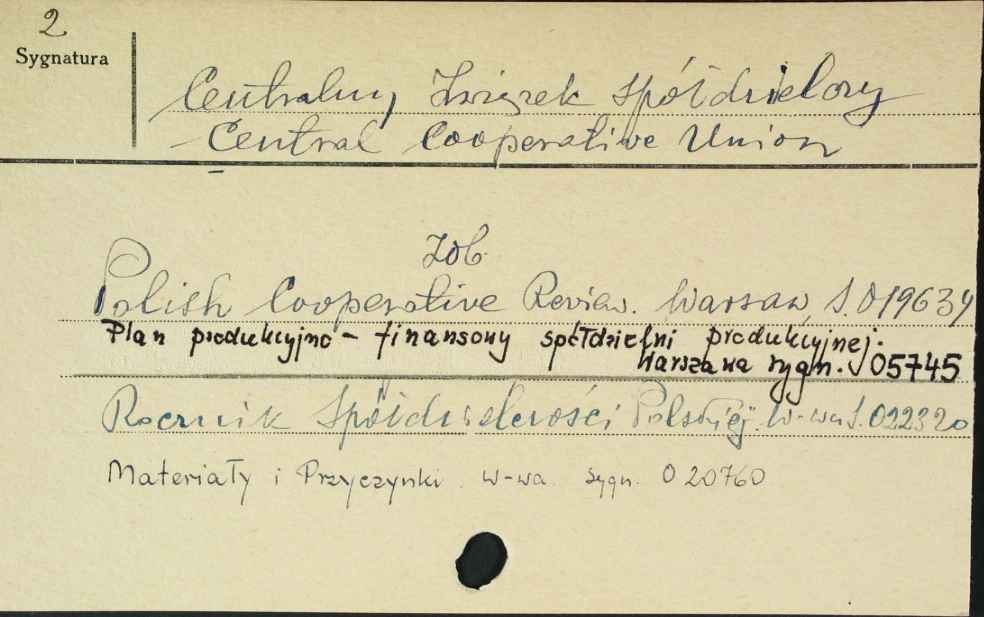 2
Sygnatura
Centralny Związek Spółdzielczy
Central Cooperative Union
Zob.
Polish Cooperative Review. Warsaw, S. 019634
Plan produkcyjno - finansowy spółdzielni produkcyjnej.
Warszawa sygn. 05745
Rocznik Spółdzielczości Polskiej. W-wa S. 022320
Materiały i Przyczynki. W-wa. sygn. 020760